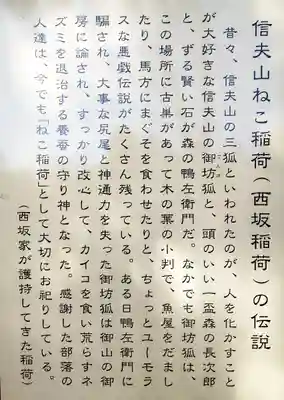 信夫山ねこ稲荷（西坂稲荷）の伝説
昔々、信夫山の三狐といわれたのが、人を化かすこと
が大好きな信夫山の御坊狐と、頭のいい一盃森の長次郎
と、ずる賢い石が森の鴨左衛門だ。なかでも御坊狐は、
この場所に古巣があって木の葉の小判で、魚屋をだまし
たり、馬方にまぐそを食わせたりと、ちょっとユーモラ
スな悪戯伝説がたくさん残っている。ある日鴨左衛門に
騙され、大事な尻尾と神通力を失った御坊狐は御山の御
房に諭され、すっかり改心して、カイコを食い荒らすネ
ズミを退治する養蚕の守り神となった。感謝した部落の
人達は、今でも「ねこ稲荷」として大切にお祀りしている。
（西坂家が護持してきた稲荷）